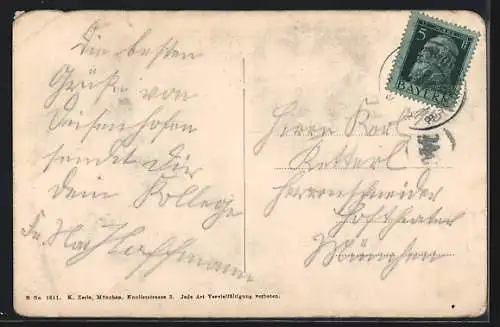 Die besten
Grüße von
Deisenhofen
sendet Dir
dein Kollege
Hoffmann
Herrn Karl
Ketterl
Herrenschneider
Hoftheater
München
5
BAYERN
B No. 1611. K. Zerle, München, Knollerstrasse 3. Jede Art Vervielfältigung verboten.